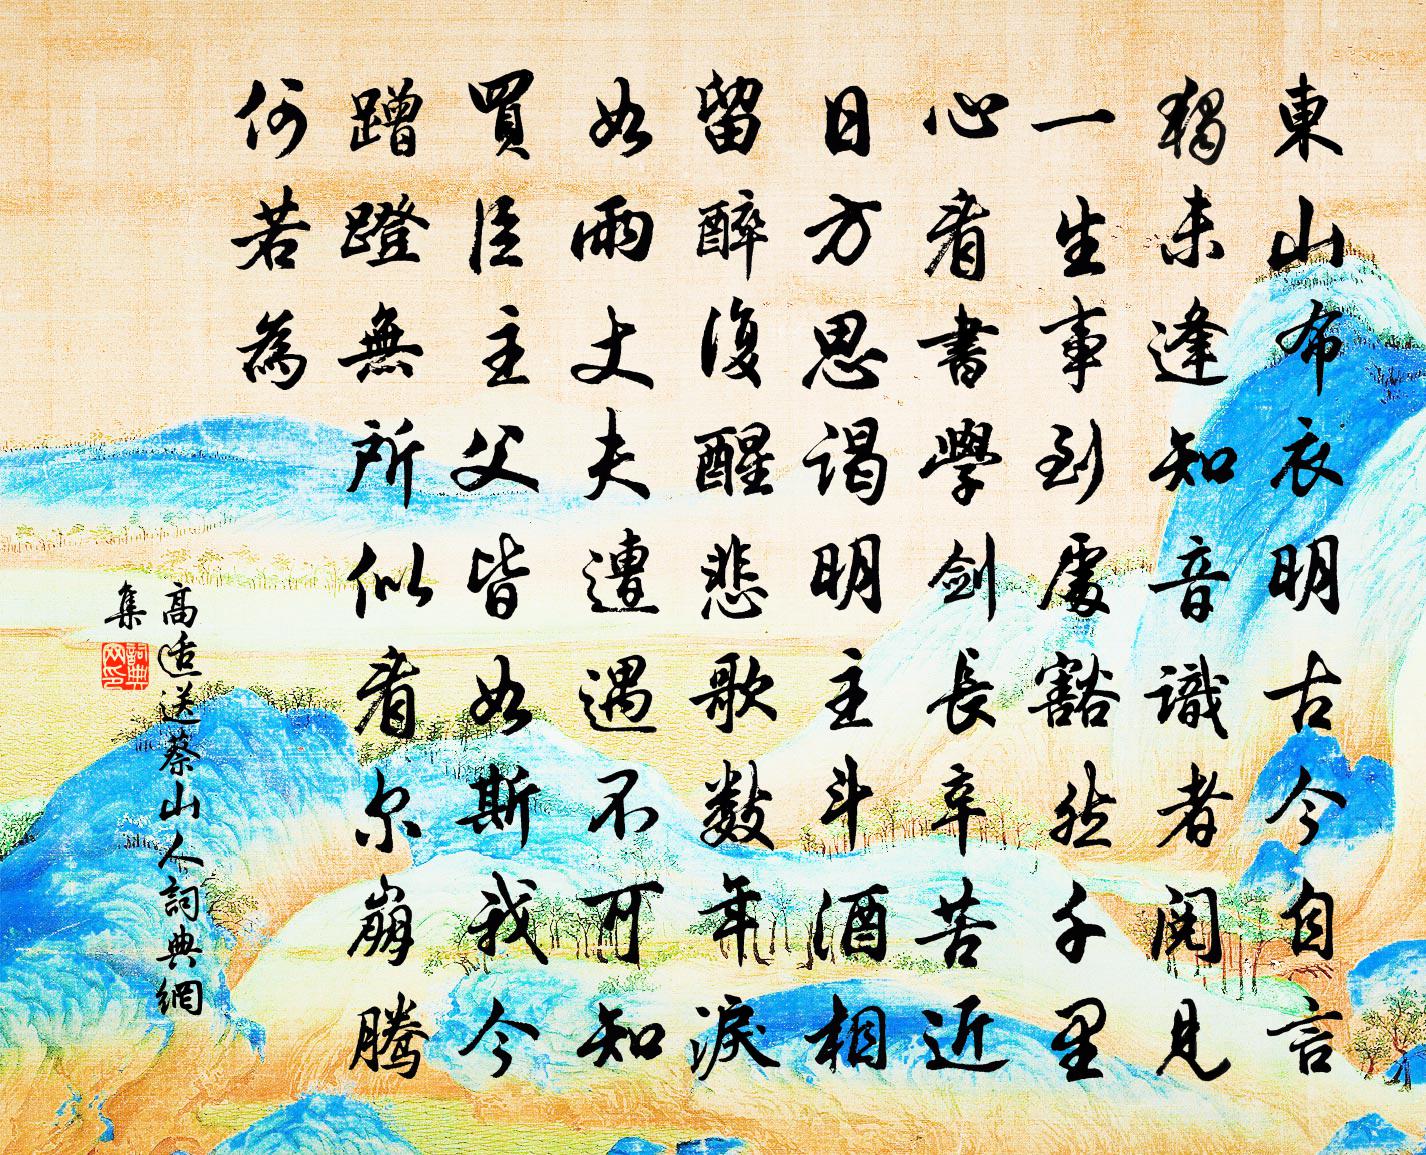 東山布衣明古今自言
獨未逢知音識者閱見
一生事到處豁然千里
心看書學劍長辛苦近
日方思謁明主斗酒相
留醉復醒悲歌數年淚
如雨丈夫遭遇不可知
買臣主父皆如斯我今
蹭蹬無所似看尔崩騰
何若為
高適送蔡山人詞典網
集
詞典网印